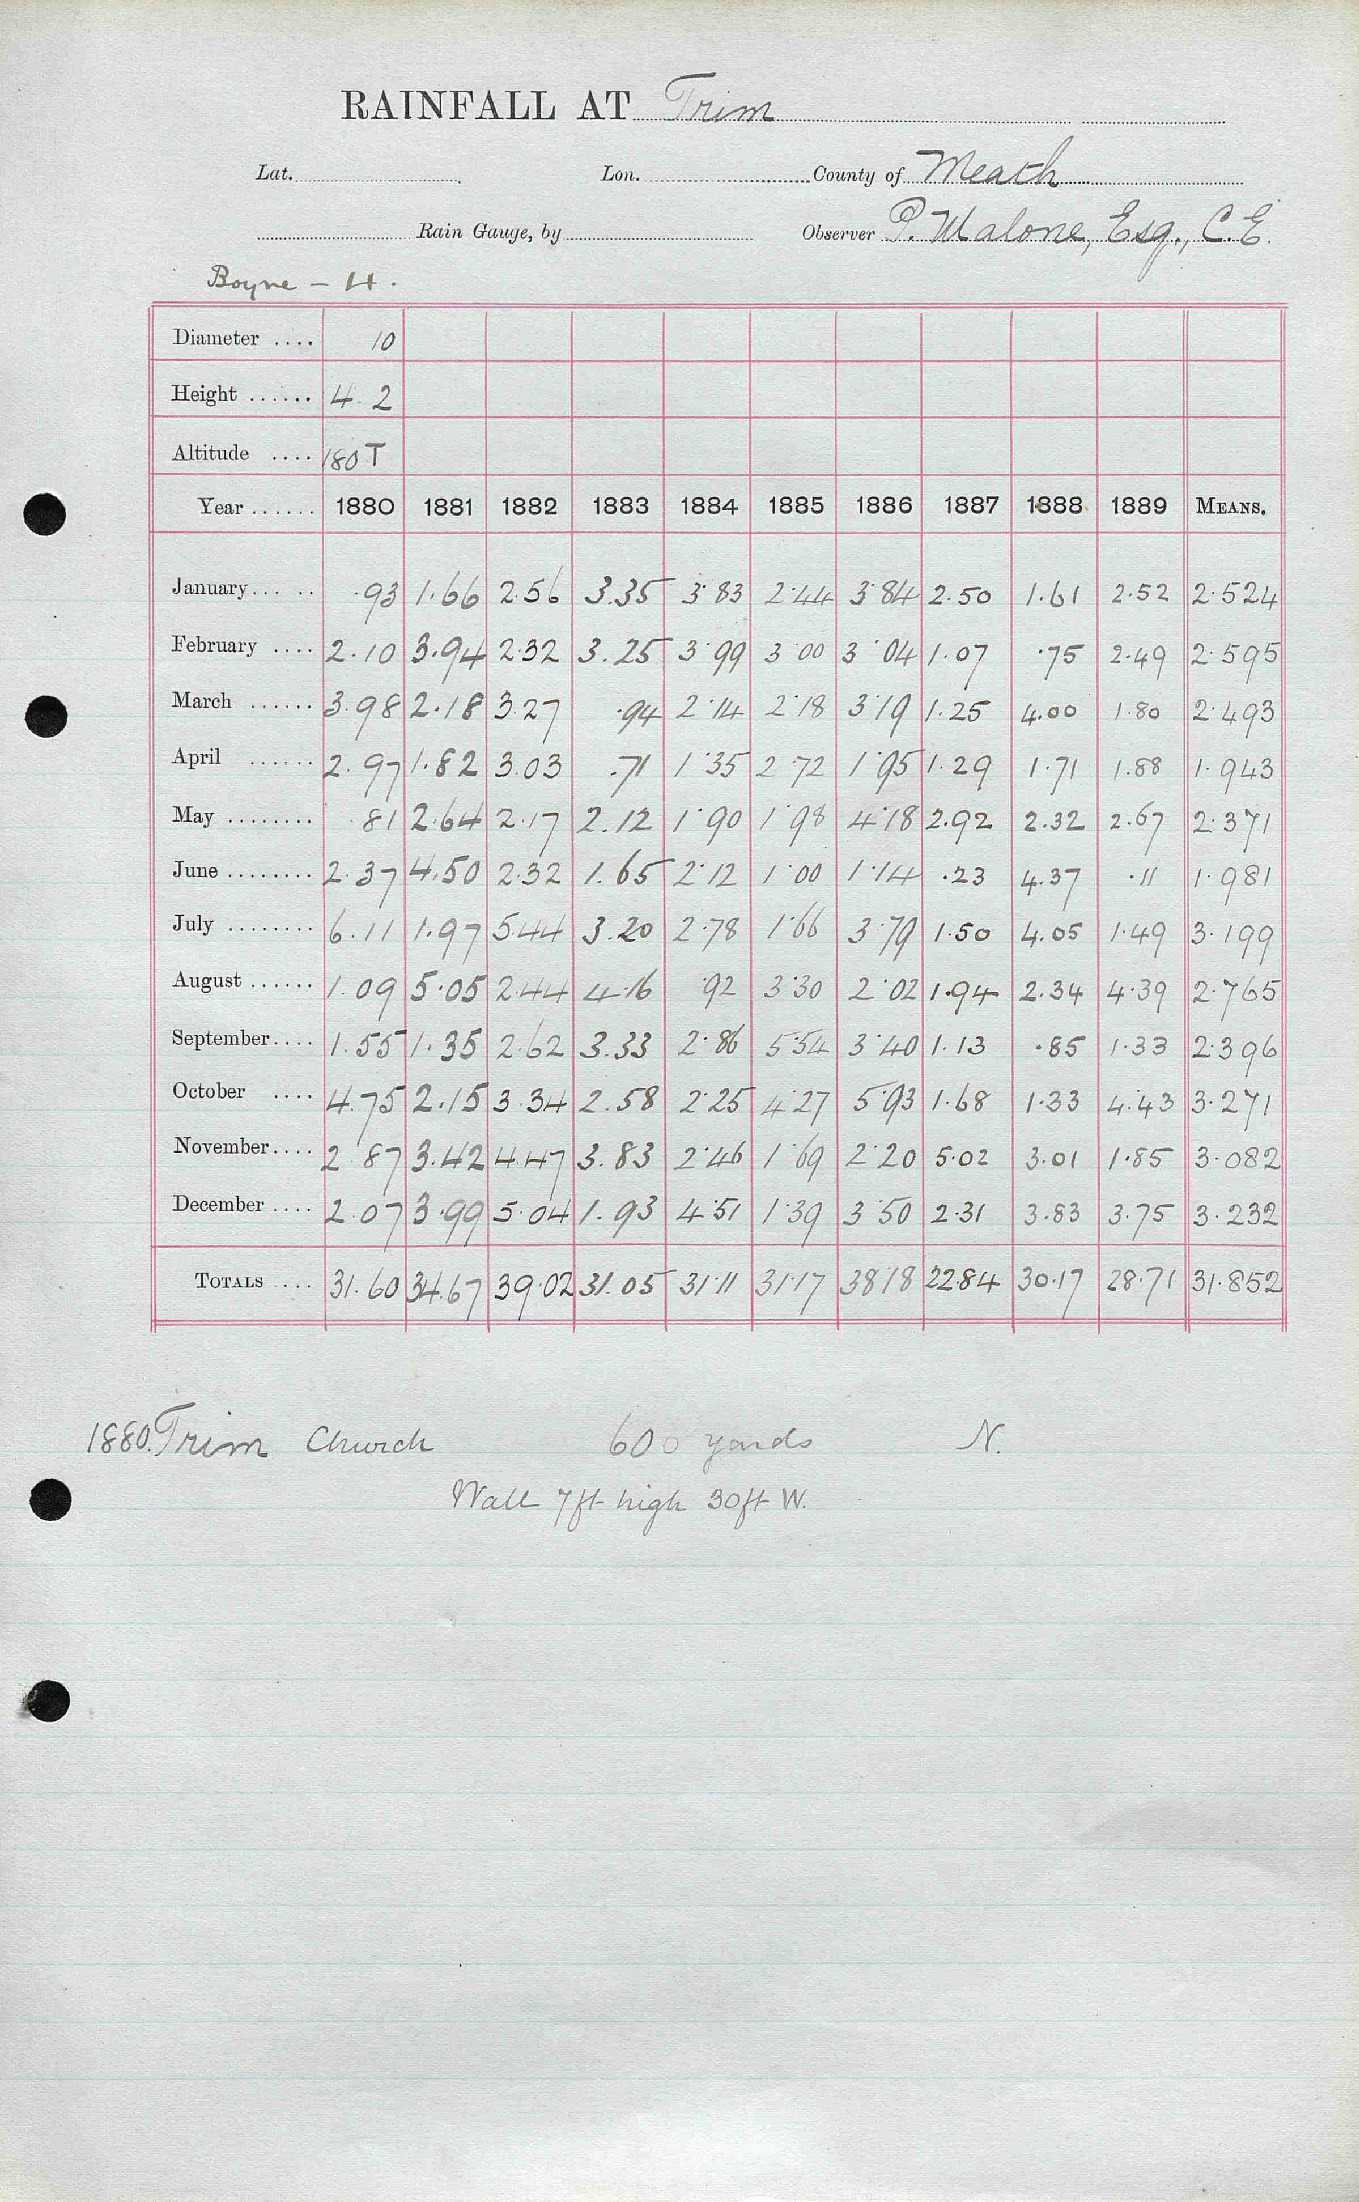 RAINFALL AT Trim
Lat. Lon. County of Meath
Rain Gauge, by Observer P. Malone, Esq., C.E.
Boyne - H.
Diameter .... 10
Height ...... 4.2
Altitude .... 180 T
Year ...... 1880 1881 1882 1883 1884 1885 1886 1887 1888 1889 MEANS.
January ... .93 1.66 2.56 3.35 3.83 2.44 3.84 2.50 1.61 2.52 2.524
February .... 2.10 3.94 2.32 3.25 3.99 3.00 3.04 1.07 .75 2.49 2.595
March ...... 3.98 2.18 3.27 .94 2.14 2.18 3.19 1.25 4.00 1.80 2.493
April ...... 2.97 1.82 3.03 .71 1.35 2.72 1.95 1.29 1.71 1.88 1.943
May ........ .81 2.64 2.17 2.12 1.90 1.98 4.18 2.92 2.32 2.67 2.371
June ........ 2.37 4.50 2.32 1.65 2.12 1.00 1.14 .23 4.37 .11 1.981
July ........ 6.11 1.97 5.44 3.20 2.78 1.66 3.79 1.50 4.05 1.49 3.199
August ...... 1.09 5.05 2.44 4.16 .92 3.30 2.02 1.94 2.34 4.39 2.765
September .... 1.55 1.35 2.62 3.33 2.86 5.54 3.40 1.13 .85 1.33 2.396
October .... 4.75 2.15 3.34 2.58 2.25 4.27 5.93 1.68 1.33 4.43 3.271
November .... 2.87 3.42 4.47 3.83 2.46 1.69 2.20 5.02 3.01 1.85 3.082
December .... 2.07 3.99 5.04 1.93 4.51 1.39 3.50 2.31 3.83 3.75 3.232
TOTALS .... 31.60 34.67 39.02 31.05 31.11 31.17 38.18 22.84 30.17 28.71 31.852
1880. Trim Church 600 yards N.
Wall 7ft high 30ft W.